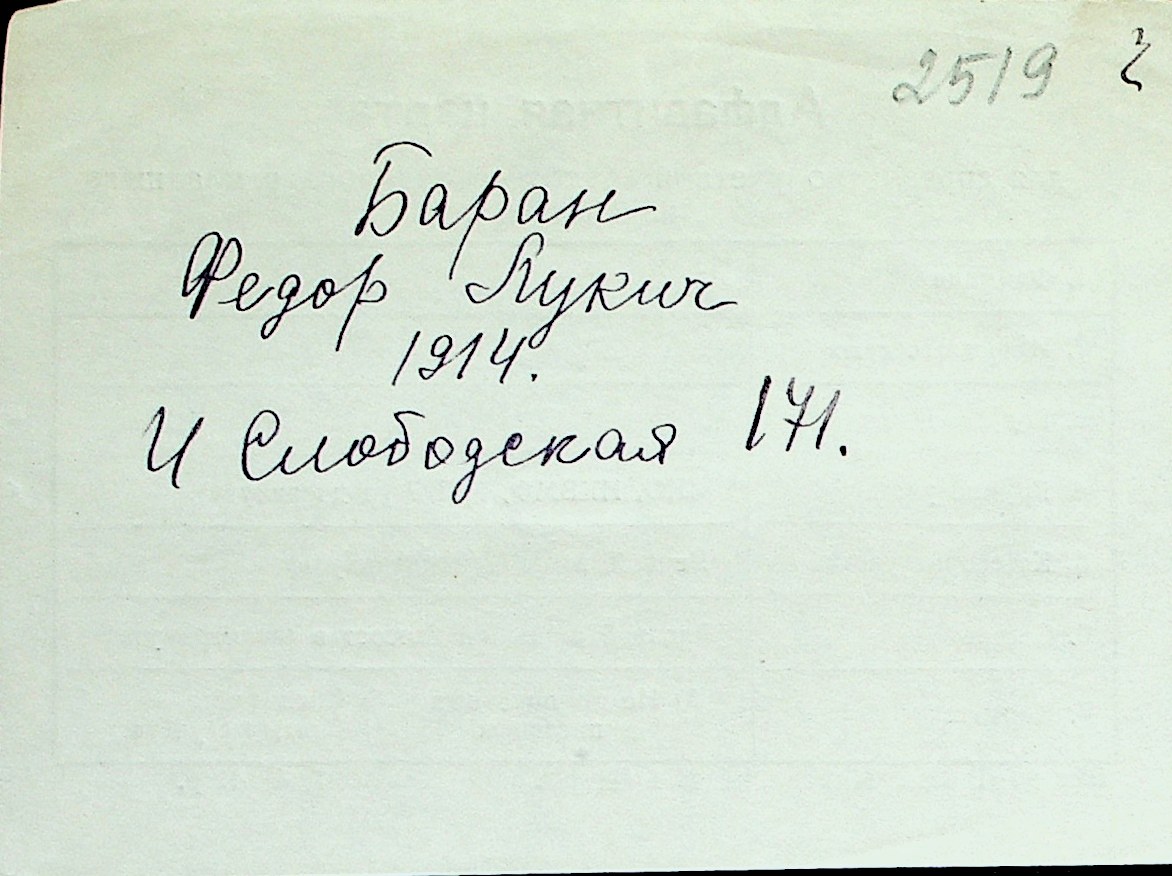 2519
Баран
Федор Лукич
1914.
Ч Слободская 171.